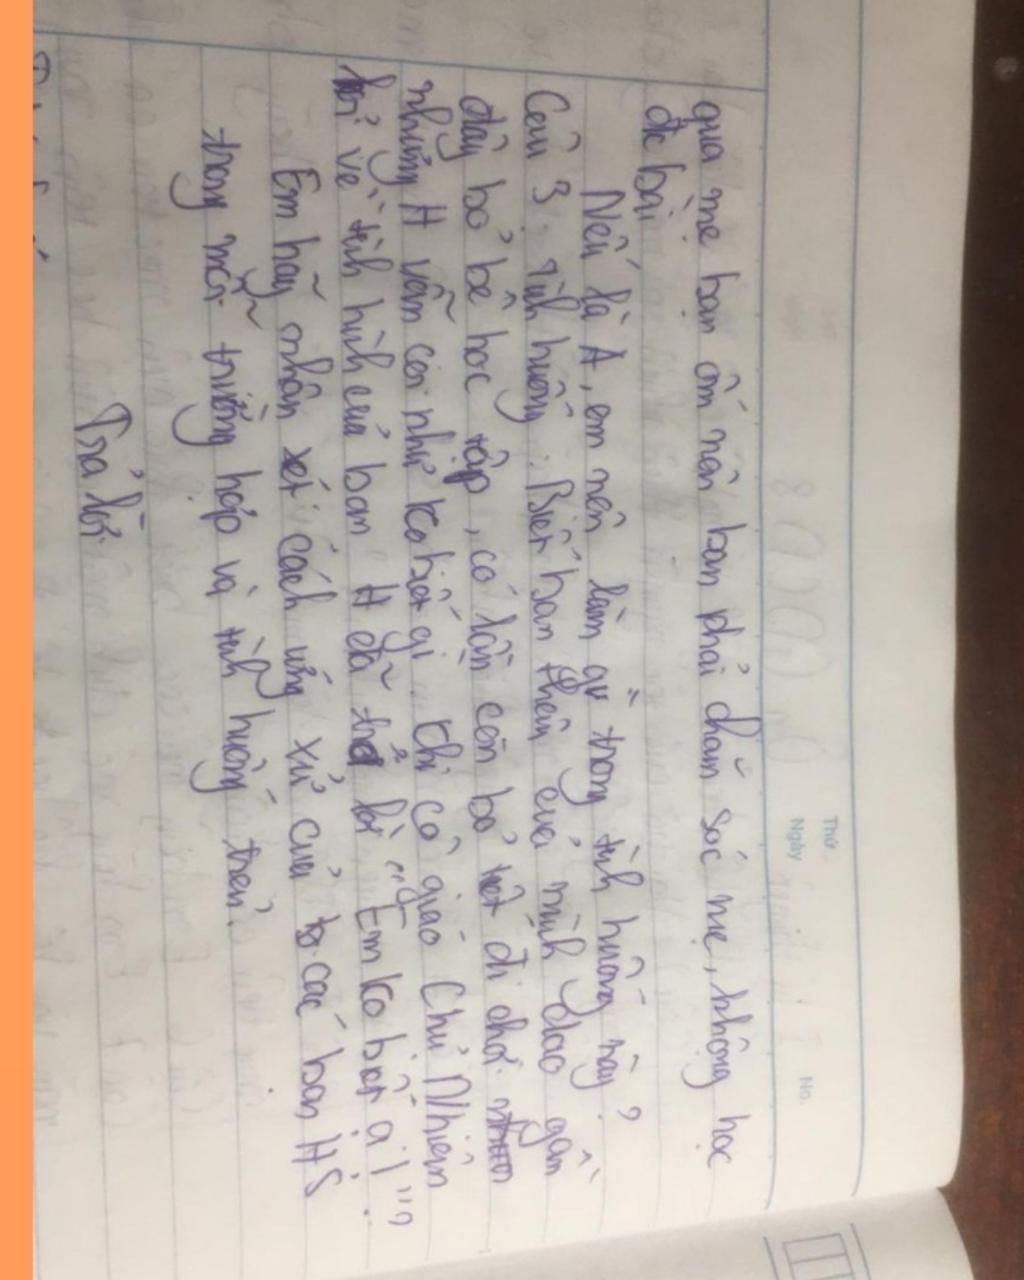 Thứ
Ngày
No.
qua mẹ bạn ốm nên bạn phải chăm sóc mẹ, không học
đc bài
Nếu là A, em nên làm gì trong tình huống này?
Câu 3: Tình huống: Biết bạn thân của mình dạo gần
đây bỏ bê học tập, có lần còn bỏ tiết đi chơi
nhưng H vẫn coi như ko biết gì. Khi cô giáo Chủ Nhiệm
hỏi về tình hình của bạn H đã trả lời "Em ko biết ạ!"
Em hãy nhận xét cách ứng xử của các bạn HS
trong mỗi trường hợp và tình huống trên?
Trả lời